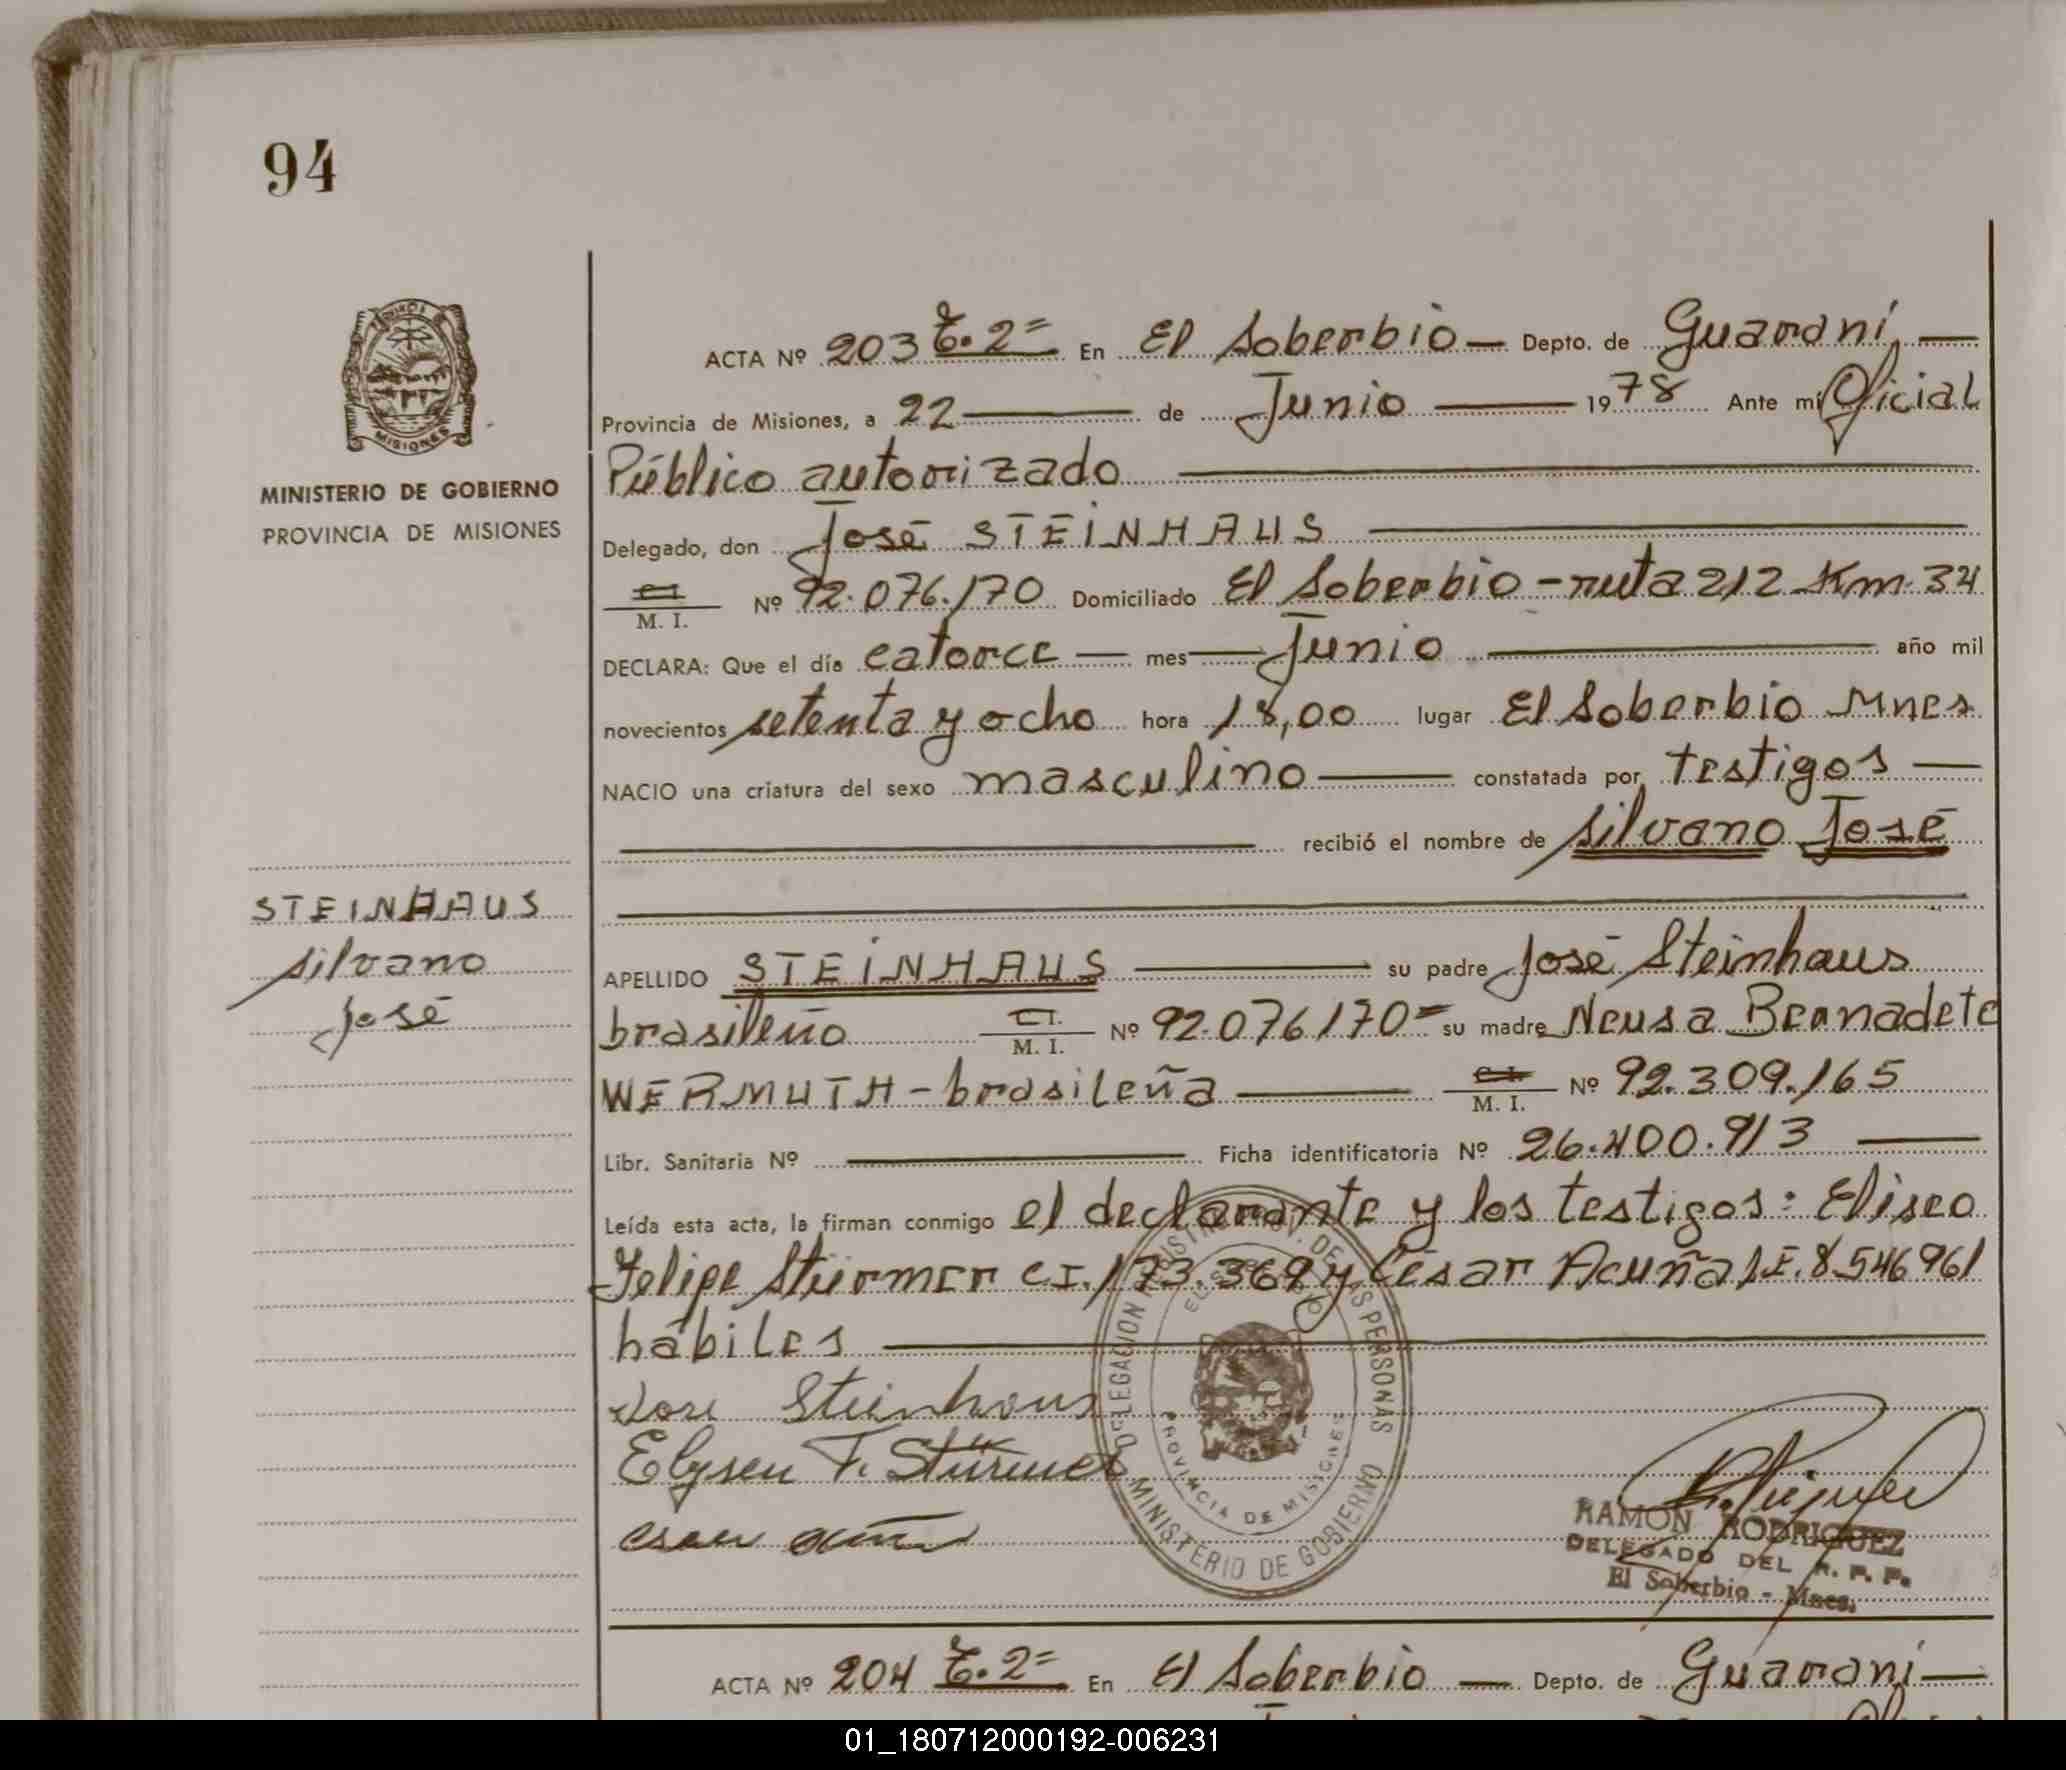 94
MISIONES
MINISTERIO DE GOBIERNO
PROVINCIA DE MISIONES
STEINHAUS
Silvano
José
ACTA Nº 203 T. 2= En El Soberbio — Depto. de Guaraní, —
Provincia de Misiones, a 22 — de Junio — 1978 Ante mí Oficial
Público autorizado —
Delegado, don José STEINHAUS —
C.I. M. I. Nº 92.076.170 Domiciliado El Soberbio - ruta 212 Km. 34
DECLARA: Que el día catorce — mes — Junio — año mil
novecientos setenta y ocho hora 18,00 lugar El Soberbio Mnes
NACIO una criatura del sexo masculino — constatada por testigos —
— recibió el nombre de Silvano José
APELLIDO STEINHAUS — su padre José Steinhaus
brasileño C.I. M. I. Nº 92.076.170 - su madre Neusa Bernadete
WERMUTH - brasileña — C.I. M. I. Nº 92.309.165
Libr. Sanitaria Nº — Ficha identificatoria Nº 26.400.913 —
Leída esta acta, la firman conmigo el declarante y los testigos: Eliseo
Felipe Stürmer C.I. 173.369 y César Acuña L.E. 8.546961
hábiles —
José Steinhaus
Elyseu F. Stürmer
DELEGACION REGISTRO PROV. DE LAS PERSONAS
EL SOBERBIO
PROVINCIA DE MISIONES
MINISTERIO DE GOBIERNO
RAMON RODRIGUEZ
DELEGADO DEL R. P. P.
El Soberbio - Mnes.
ACTA Nº 204 T. 2= En El Soberbio — Depto. de Guaraní —
01_180712000192-006231